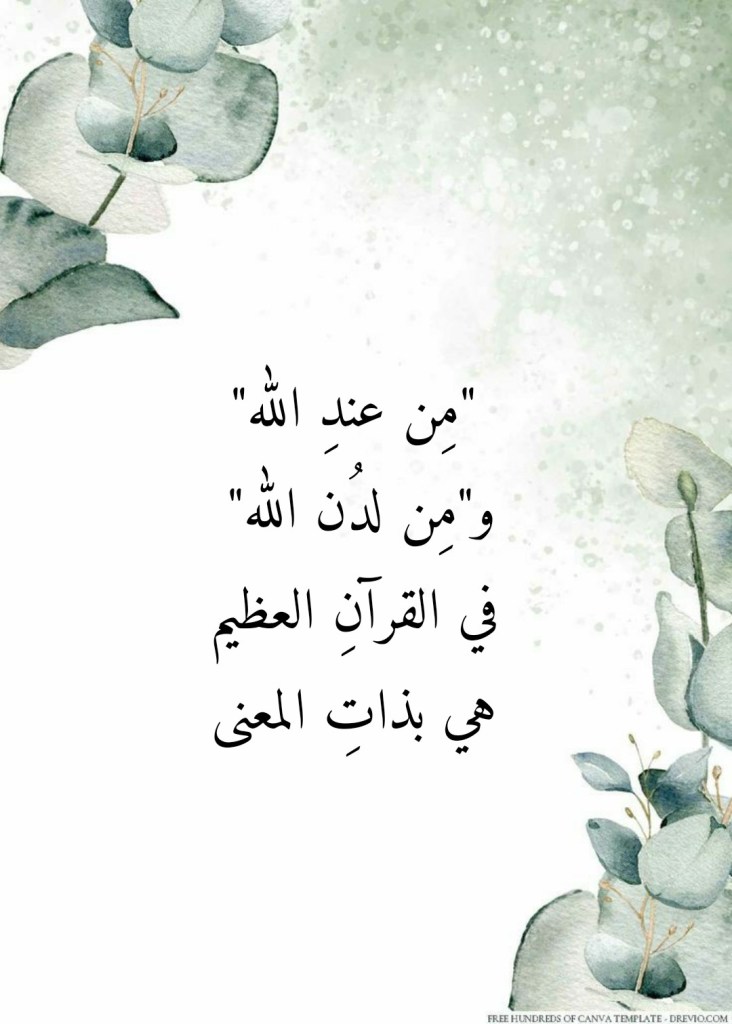 "مِن عندِ الله"
و"مِن لدُن الله"
في القرآنِ العظيم
هي بذاتِ المعنى
FREE HUNDREDS OF CANVA TEMPLATE - DREVIO.COM